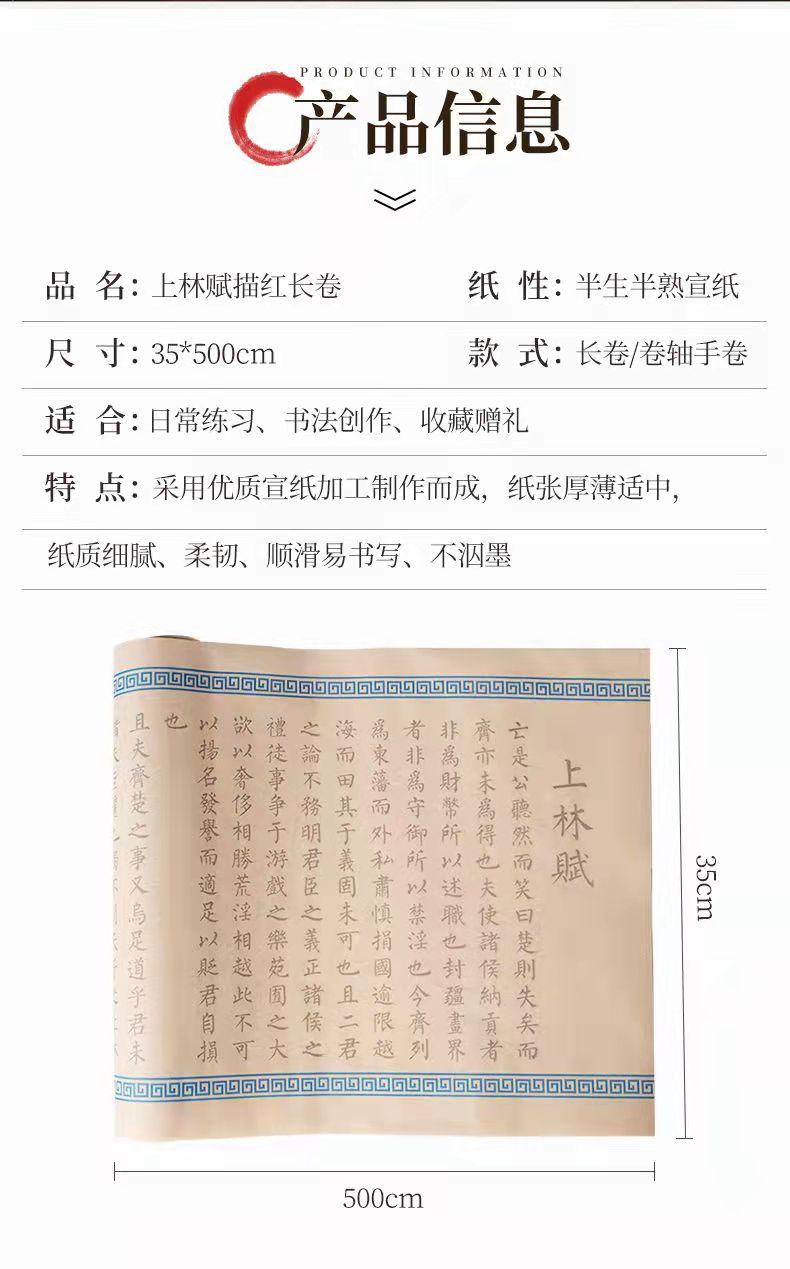 PRODUCT INFORMATION
产品信息
品 名：上林赋描红长卷
纸 性：半生半熟宣纸
尺 寸：35*500cm
款 式：长卷/卷轴手卷
适 合：日常练习、书法创作、收藏赠礼
特 点：采用优质宣纸加工制作而成，纸张厚薄适中，
纸质细腻、柔韧、顺滑易书写、不洇墨
上林賦
亡是公聽然而笑曰楚則失矣而
齊亦未為得也夫使諸侯納貢者
非為財幣所以述職也封疆畫界
者非為守御所以禁淫也今齊列
為東藩而外私肅慎捐國逾限越
海而田其于義固未可也且二君
之論不務明君臣之義正諸侯之
禮徒事爭于游戲之樂苑囿之大
欲以奢侈相勝荒淫相越此不可
以揚名發譽而適足以貶君自損
也
且夫齊楚之事又烏足道乎君未
35cm
500cm